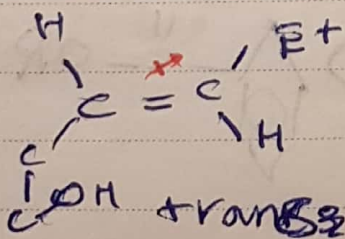 H Et
C = C
C H
C OH trans